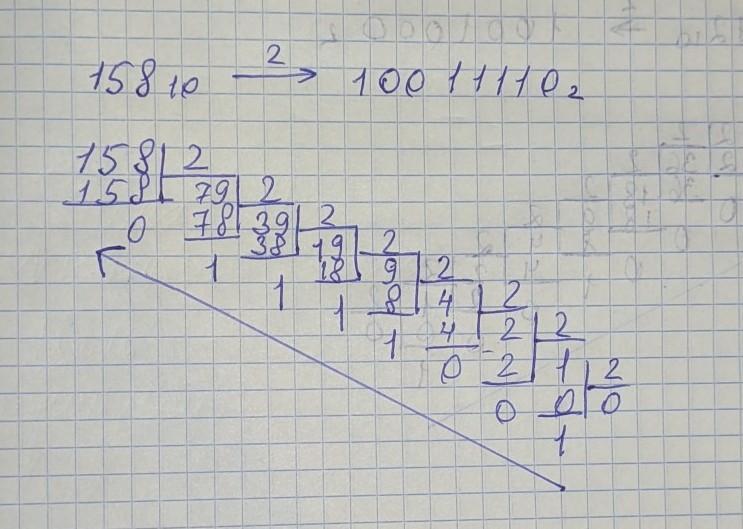 158₁₀ —2→ 10011110₂
158 2
158 79 2
0 78 39 2
38 19 2
1 18 9 2
1 8 4 2
1 4 2 2
1 0 2 1 2
0 0 0
1